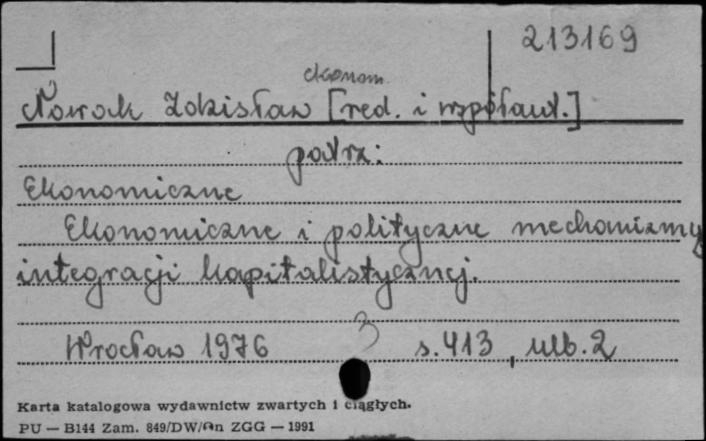 213169
ekonom.
Nowak Zdzisław [red. i współaut.]
patrz:
Ekonomiczne
Ekonomiczne i polityczne mechanizmy
integracji kapitalistycznej.
3
Wrocław 1976 s. 413, ulb. 2
Karta katalogowa wydawnictw zwartych i ciągłych.
PU — B144 Zam. 849/DW/On ZGG — 1991